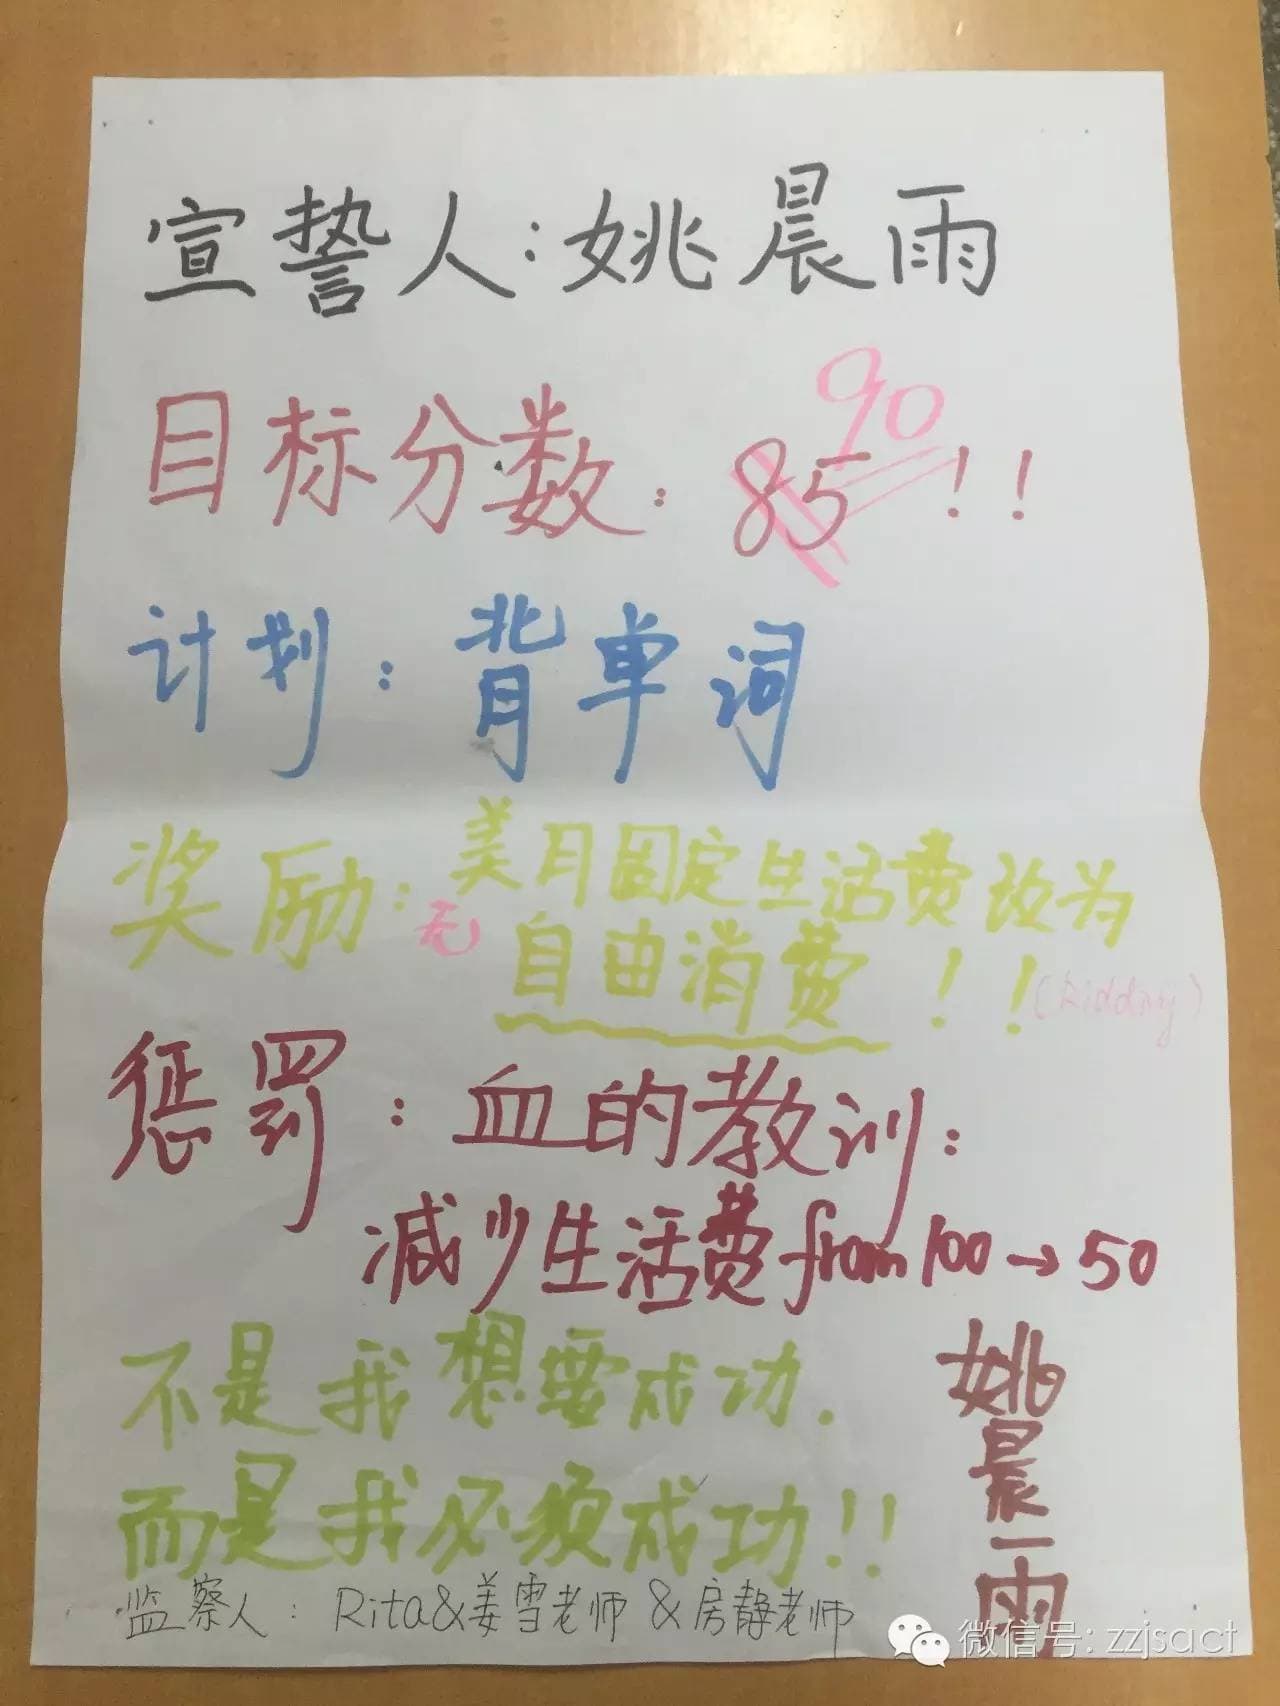 宣誓人:姚晨雨
目标分数: 85 90 !!
计划: 背单词
奖励: 美月固定生活费改为
无
自由消费!!
惩罚: 血的教训:
减少生活费from 100→50
不是我想要成功.
而是我必须成功!!
姚晨雨
监察人: Rita&姜雪老师&房静老师
微信号: zzjsact